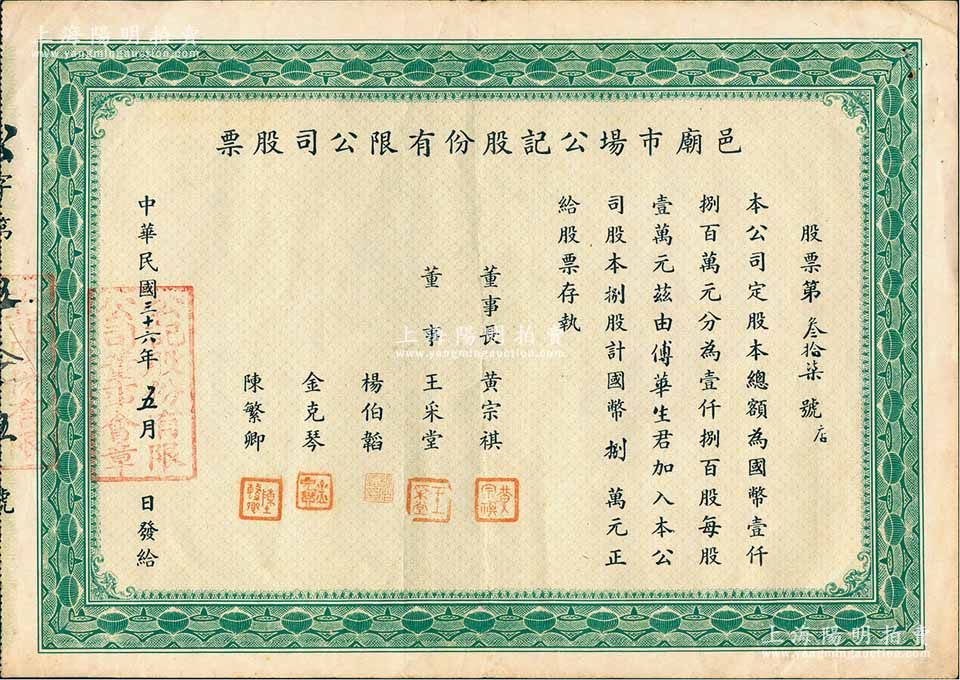 上海陽明拍賣
www.yangmingauction.com
邑廟市場公記股份有限公司股票
股票第叁拾柒號店
本公司定股本總額為國幣壹仟
捌百萬元分為壹仟捌百股每股
壹萬元茲由傅華生君加入本公
司股本捌股計國幣捌萬元正
給股票存執
董事長 黃宗祺
董事 王采堂
楊伯韜
金克琴
陳繁卿
中華民國三十六年五月 日發給
上海陽明拍賣
www.yangmingauction.com
上海陽明拍賣
www.yangmingauction.com